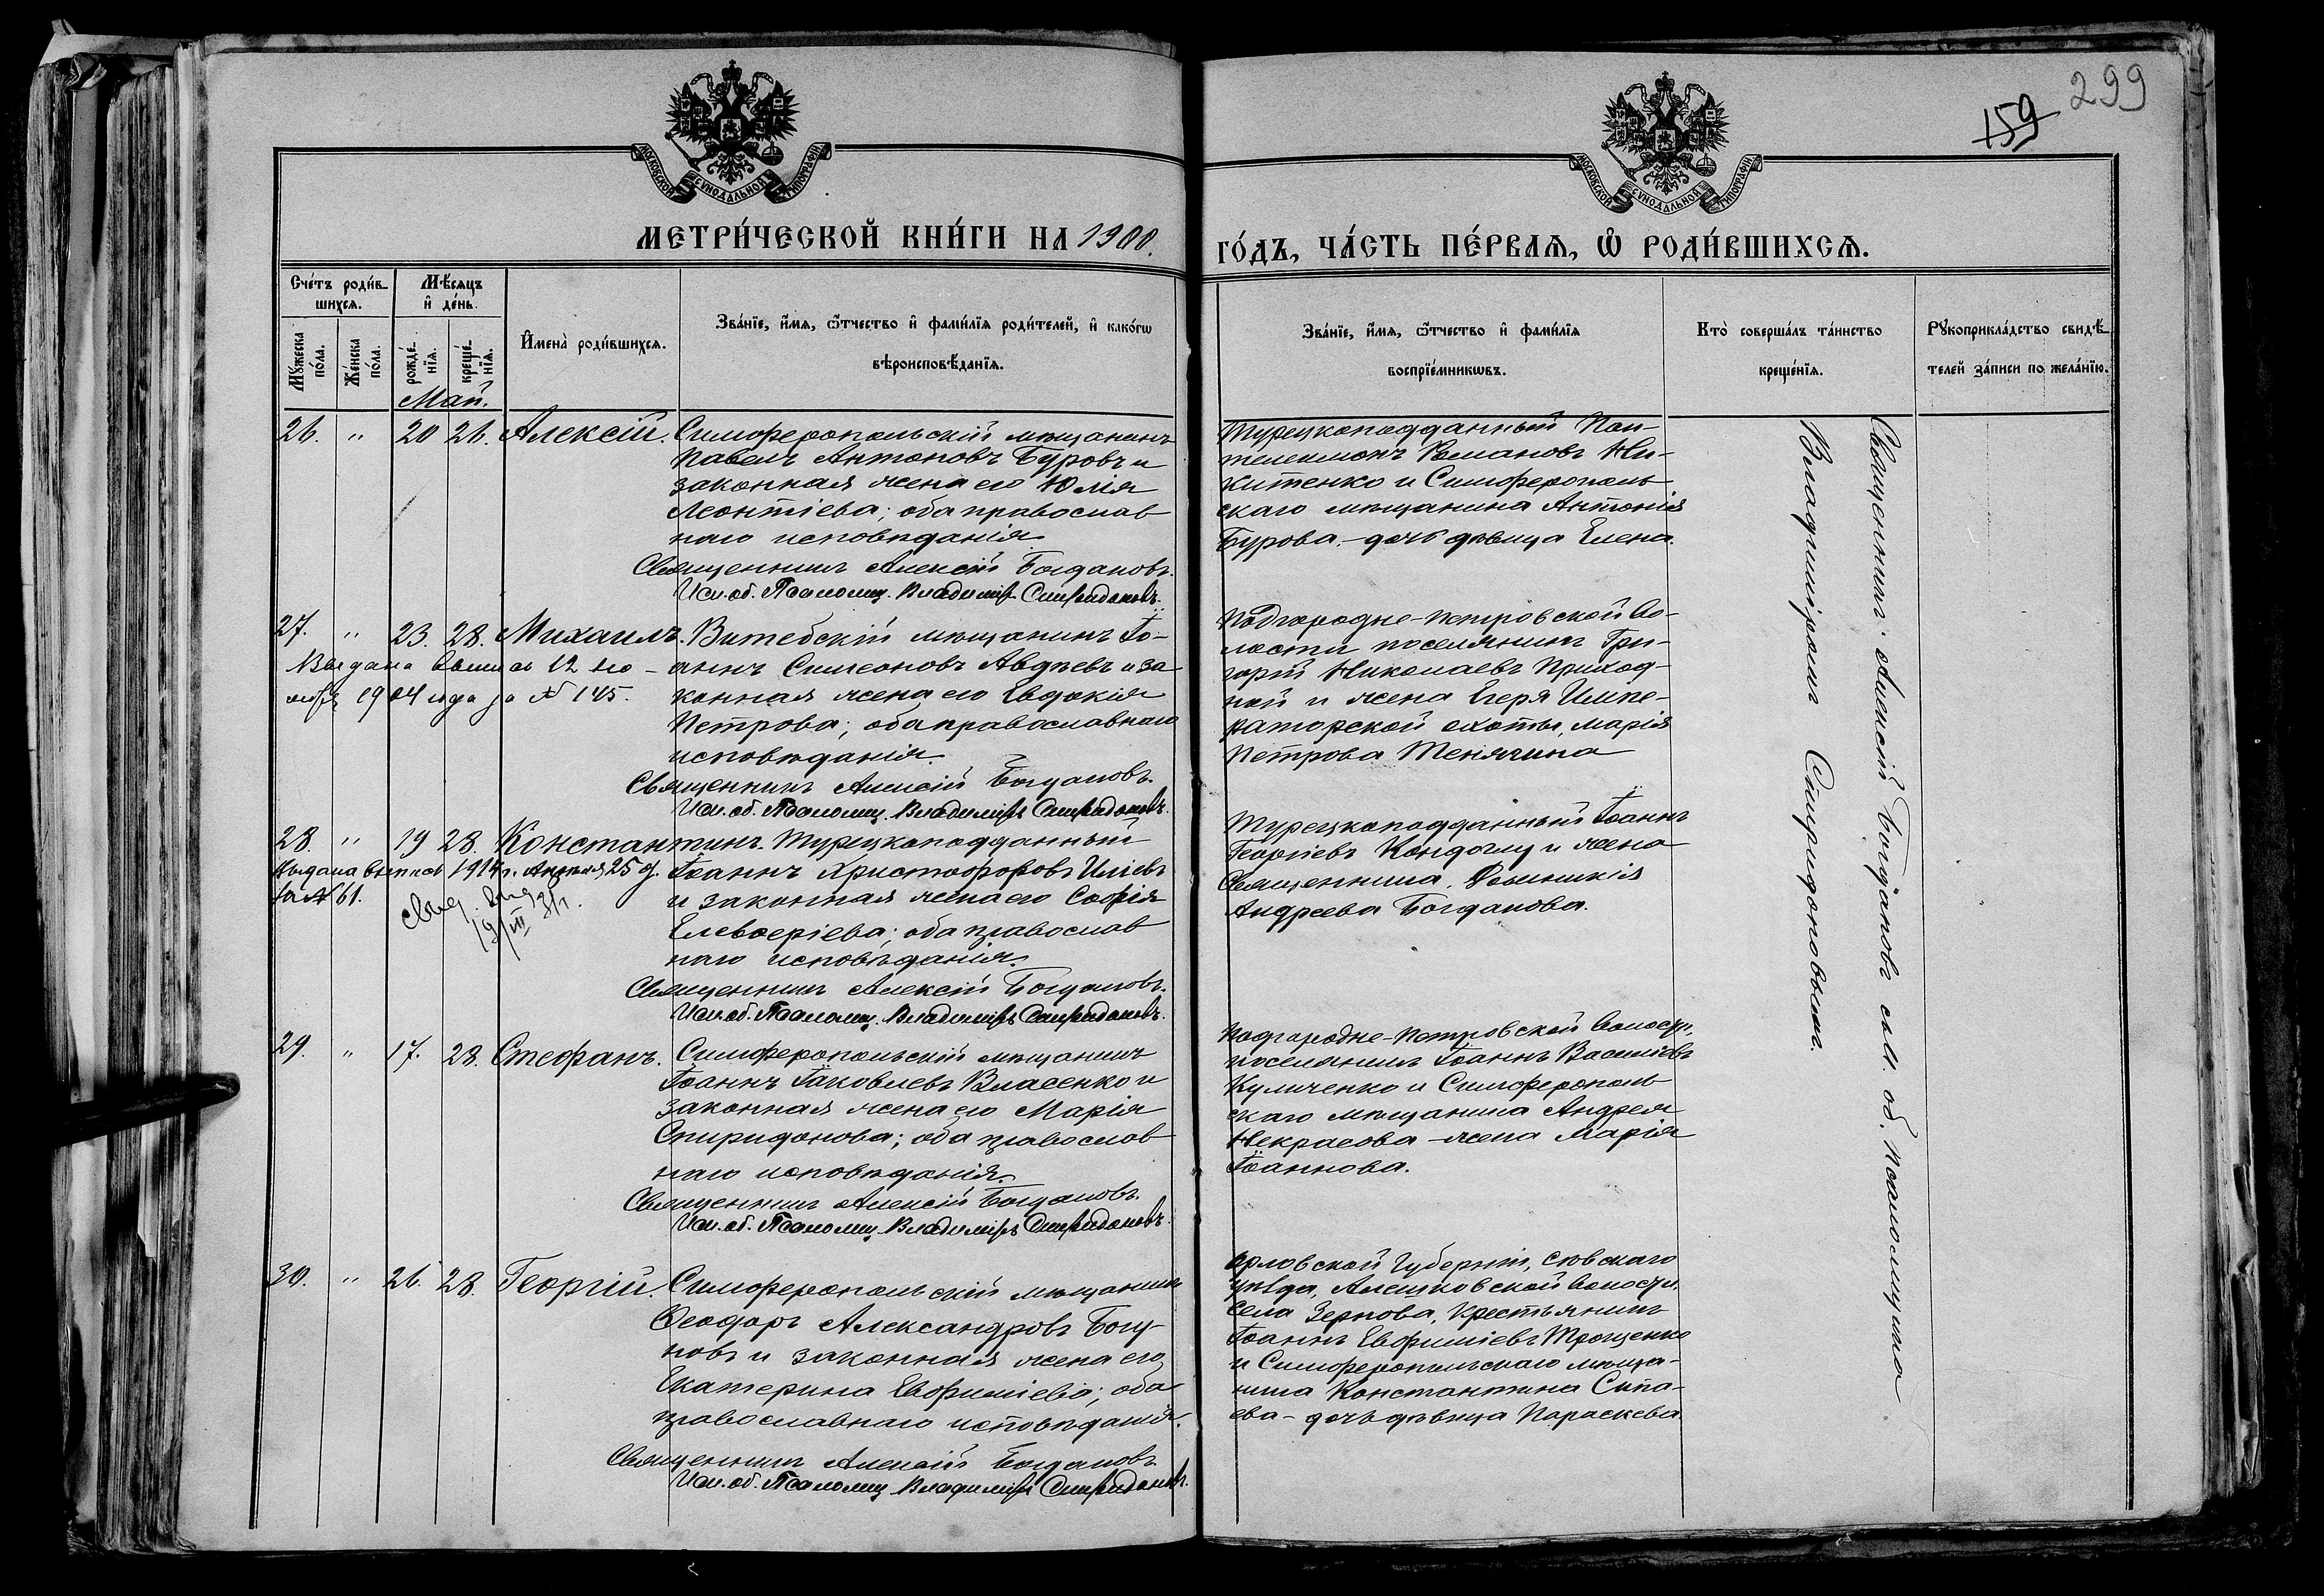 299
159
МОСКОВСКОЙ СѴНОДАЛЬНОЙ ТИПОГРАФІИ
МОСКОВСКОЙ СѴНОДАЛЬНОЙ ТИПОГРАФІИ
МЕТРИ́ЧЕСКОЙ КНИ́ГИ НА 1900.
ГО́ДЪ, ЧА́СТЬ ПЕ́РВАѦ, Ѽ РОДИ́ВШИХСѦ.
Сче́тъ роди́в-
шихсѧ.
Мꙋ́жеска по́ла.
Же́нска по́ла.
Мѣ́сѧцъ
и҆ де́нь.
рожде́-нїѧ.
креще́-нїѧ.
И҆мена̀ роди́вшихсѧ.
Зва́нїе, и҆́мѧ, ѻ҆́тчество и҆ фами́лїѧ роди́телей, и҆ како́гѡ
вѣроисповѣ́данїѧ.
Зва́нїе, и҆́мѧ, ѻ҆́тчество и҆ фами́лїѧ
воспрїе́мникѡвъ.
Кто̀ соверша́лъ та́инство
креще́нїѧ.
Рꙋкоприкла́дство свидѣ́-
телей за́писи по жела́нїю.
Май.
26. " 20 26. Алексій. Симферопольскій мѣщанинъ
Павелъ Антоновъ Буровъ и
законная жена его Юлія
Леонтіева; оба православ
наго исповѣданія.
Священникъ Алексій Богдановъ.
Исп. об. Псаломщ. Владиміръ Спиридоновъ.
Турецкоподданный Пан-
телеимонъ Романовъ Ни-
китенко и Симферополь
скаго мѣщанина Антонія
Бурова - дочь дѣвица Елена.
27. " 23. 28. Михаилъ. Витебскій мѣщанинъ Іо-
аннъ Симеоновъ Авдѣевъ и за
конная жена его Евдокія
Петрова; оба православнаго
исповѣданія.
Выдана выпись 12 но-
ября 1904 года за № 145.
Священникъ Алексій Богдановъ.
Исп. об. Псаломщ. Владиміръ Спиридоновъ.
Подгородне-Петровской Во-
лости поселянинъ Гри-
горій Николаевъ Приход-
кой и жена Егеря Импе-
раторской охоты, Марія
Петрова Тенячина
28. " 19 28. Константинъ. Турецкоподданный
Іоаннъ Христофоровъ Иліевъ
и законная жена его Софія
Елевѳеріева; оба православ
наго исповѣданія.
Выдана выпись 1914 г. Апреля 25 д.
за № 61.
Священникъ Алексій Богдановъ.
Исп. об. Псаломщ. Владиміръ Спиридоновъ.
Турецкоподданный Іоаннъ
Георгіевъ и жена
Священника, Домникія
Андреева Богданова.
29. " 17. 28. Стефанъ. Симферопольскій мѣщанинъ
Іоаннъ Іаковлевъ Власенко и
законная жена его Марія
Спиридонова; оба православ
наго исповѣданія.
Священникъ Алексій Богдановъ.
Исп. об. Псаломщ. Владиміръ Спиридоновъ.
Подгородне-Петровской Волости,
поселянинъ Іоаннъ Василіевъ
Куличенко и Симферополь
скаго мѣщанина Андрея
Некрасова - жена Марія
Іоаннова.
30. " 26. 28. Георгій. Симферопольскій мѣщанинъ
Ѳеодоръ Александровъ
новъ и законная жена его
Екатерина Евфиміева; оба
православнаго исповѣданія.
Священникъ Алексій Богдановъ.
Исп. об. Псаломщ. Владиміръ Спиридоновъ.
Орловской Губерніи, Сѣвскаго
уѣзда, Алешковской Волости,
села Зернова, крестьянинъ
Іоаннъ Евфиміевъ Трощенко
и Симферопольскаго мѣща-
нина Константина Сипа-
ева - дочь дѣвица Параскева
Священникъ Алексій Богдановъ съ И. об. Псаломщика
Владиміромъ Спиридоновымъ.